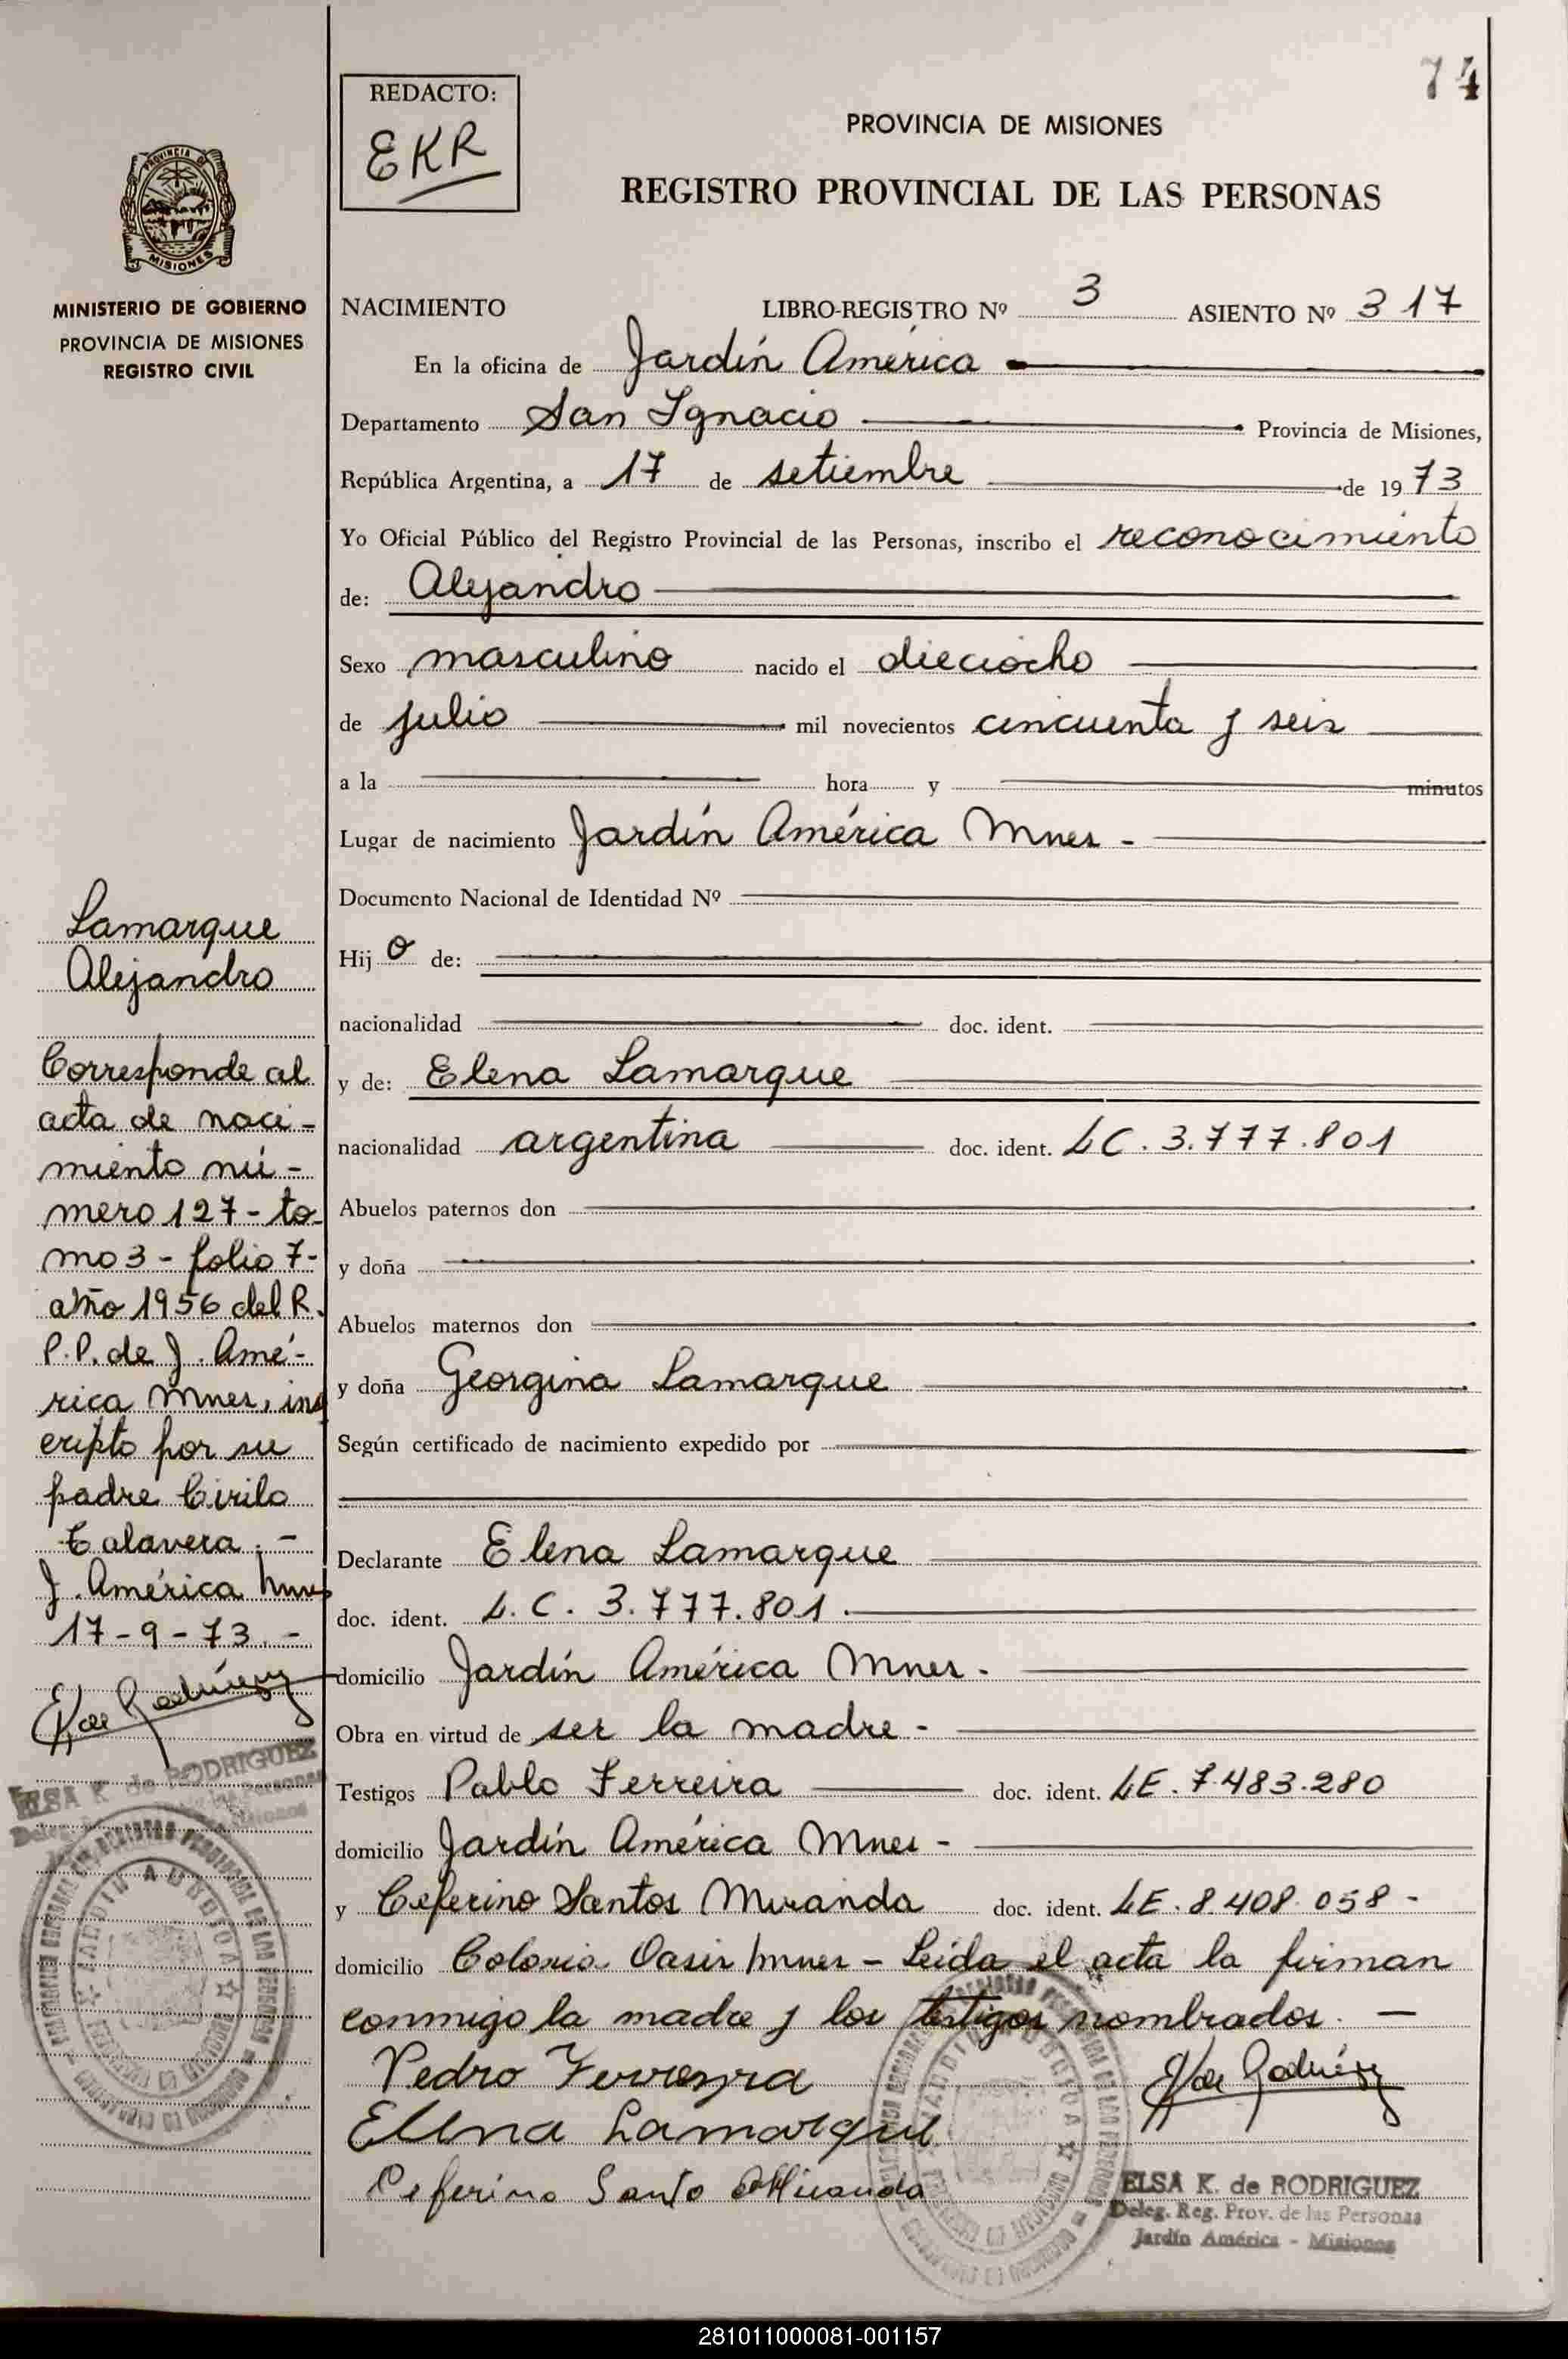 74
REDACTO:
EKR
PROVINCIA DE MISIONES
REGISTRO PROVINCIAL DE LAS PERSONAS
PROVINCIA DE
MISIONES
MINISTERIO DE GOBIERNO
PROVINCIA DE MISIONES
REGISTRO CIVIL
NACIMIENTO LIBRO-REGISTRO Nº 3 ASIENTO Nº 317
En la oficina de Jardín América
Departamento San Ignacio Provincia de Misiones,
República Argentina, a 17 de setiembre de 1973
Yo Oficial Público del Registro Provincial de las Personas, inscribo el reconocimiento
de: Alejandro
Sexo masculino nacido el dieciocho
de julio mil novecientos cincuenta y seis
a la hora y minutos
Lugar de nacimiento Jardín América Mnes -
Documento Nacional de Identidad Nº
Hijo de:
nacionalidad doc. ident.
y de: Elena Lamarque
nacionalidad argentina doc. ident. LC. 3.777.801
Abuelos paternos don
y doña
Abuelos maternos don
y doña Georgina Lamarque
Según certificado de nacimiento expedido por
Declarante Elena Lamarque
doc. ident. L.C. 3.777.801.
domicilio Jardín América Mnes.
Obra en virtud de ser la madre -
Testigos Pablo Ferreira doc. ident. LE. 7.483.280
domicilio Jardín América Mnes -
y Ceferino Santos Miranda doc. ident. LE. 8.408.058 -
domicilio Colonia Oasis Mnes - Leída el acta la firman
conmigo la madre y los testigos nombrados. —
Pedro Ferreyra
Elena Lamarque
Ceferino Santo Miranda
EK de Rodríguez
ELSA K. de RODRIGUEZ
Deleg. Reg. Prov. de las Personas
Jardín América - Misiones
Lamarque
Alejandro
Corresponde al
acta de naci-
miento nú-
mero 127 - to-
mo 3 - folio 7-
año 1956 del R.
P.P. de J. Amé-
rica Mnes, ins
cripto por su
padre Cirilo
Talavera. -
J. América Mnes
17-9-73. -
EK de Rodríguez
ELSA K. de RODRIGUEZ
281011000081-001157